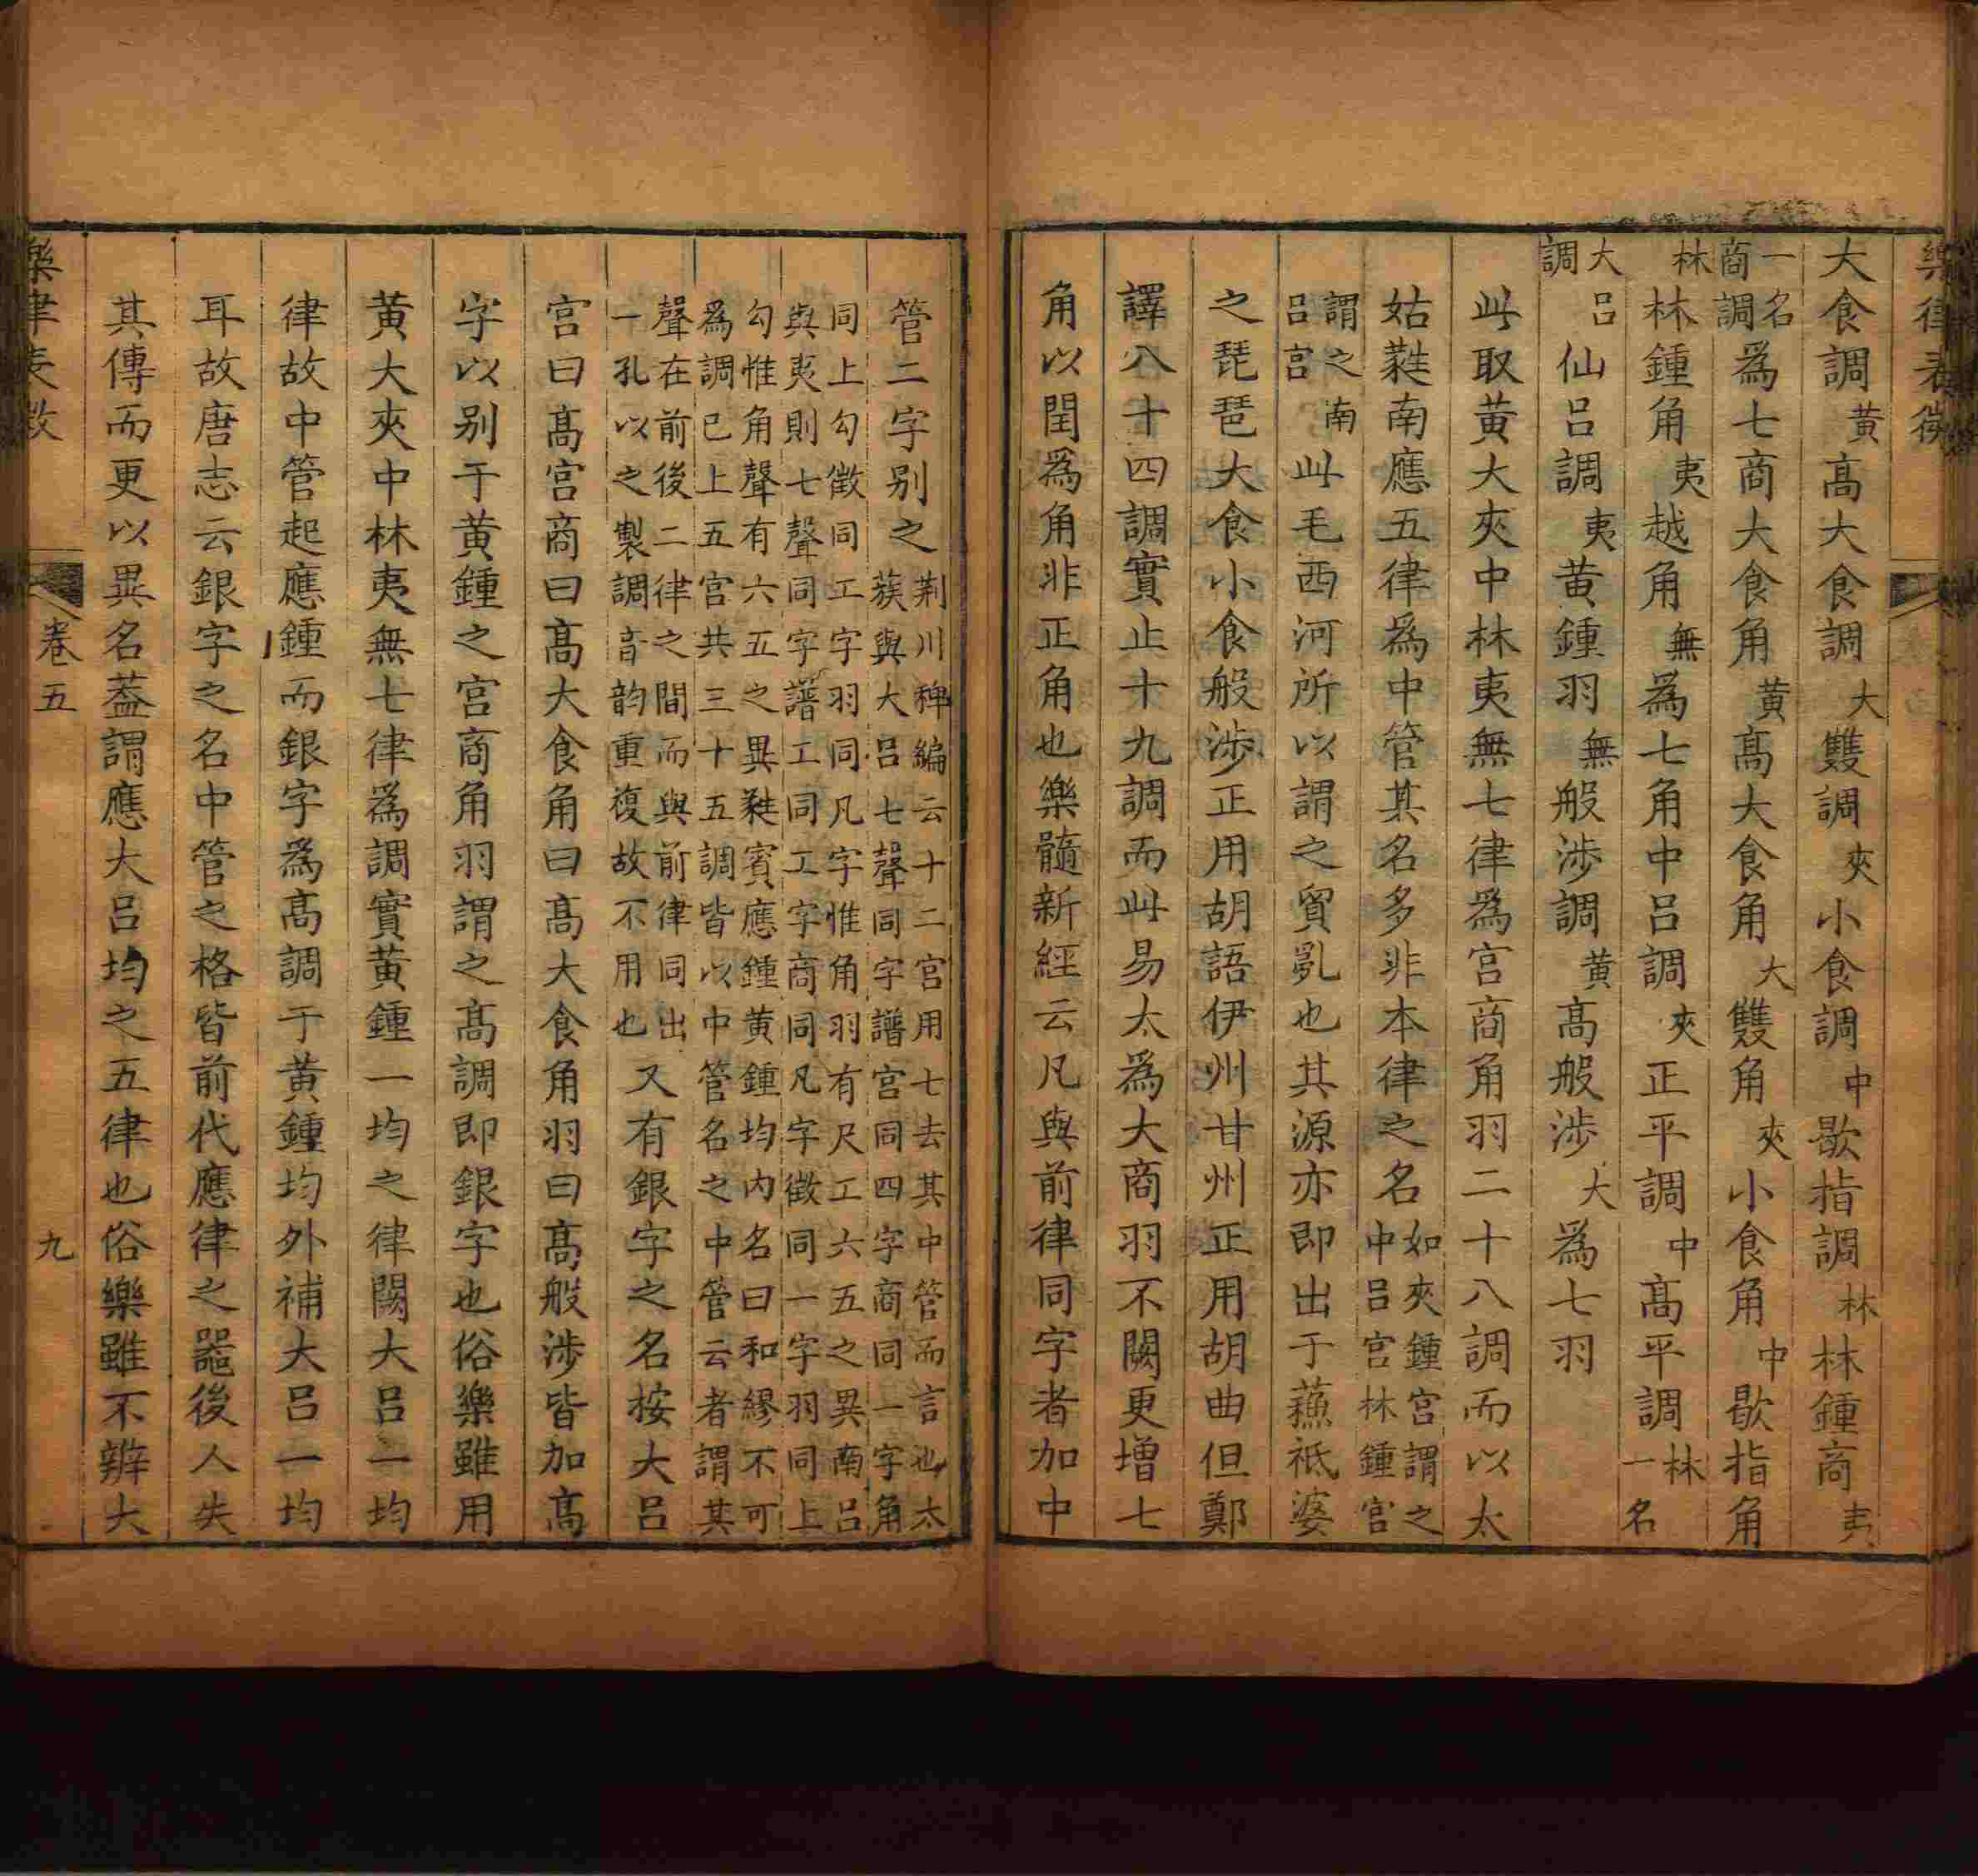 樂律表微
大食調黃高大食調大雙調夾小食調中歇指調林林鍾商夷
一名商調爲七商大食角黃高大食角大雙角夾小食角中歇指角
林林鍾角夷越角無爲七角中呂調夾正平調中高平調林一名
大呂調仙呂調夷黃鍾羽無般涉調黃高般涉大爲七羽
此取黃大夾中林夷無七律爲宮商角羽二十八調而以太
姑蕤南應五律爲中管其名多非本律之名如夾鍾宮謂之中呂宮林鍾宮
謂之南呂宮此毛西河所以謂之貿亂也其源亦即出于蘓祗婆
之琵琶大食小食般涉正用胡語伊州甘州正用胡曲但鄭
譯八十四調實止十九調而此易太爲大商羽不闕更增七
角以閏爲角非正角也樂髓新經云凡與前律同字者加中
管二字别之荆川稗編云十二宮用七去其中管而言也太蔟與大呂七聲同字譜宮同四字商同一字角
同上勾徵同工字羽同凡字惟角羽有尺工六五之異南呂與夷則七聲同字譜工同工字商同凡字徵同一字羽同上
勾惟角聲有六五之異蕤賓應鍾黃鍾均内名曰和繆不可爲調已上五宮共三十五調皆以中管名之中管云者謂其
聲在前後二律之間而與前律同出一孔以之製調音韵重複故不用也又有銀字之名按大呂
宮曰高宮商曰高大食角曰高大食角羽曰高般涉皆加高
字以别于黃鍾之宮商角羽謂之高調即銀字也俗樂雖用
黃大夾中林夷無七律爲調實黃鍾一均之律闕大呂一均
律故中管起應鍾而銀字爲高調于黃鍾均外補大呂一均
耳故唐志云銀字之名中管之格皆前代應律之噐後人失
其傳而更以異名葢謂應大呂均之五律也俗樂雖不辨大
樂律表微
卷五
九